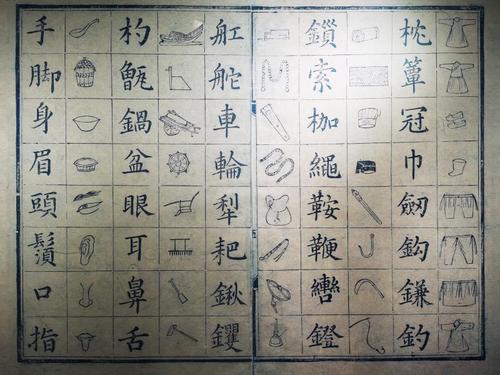 枕簟冠巾劒鈎鎌釣
鎖索枷繩鞍鞭轡鐙
舡舵車輪犁耙鍬钁
杓甑鍋盆眼耳鼻舌
手脚身眉頭鬚口指